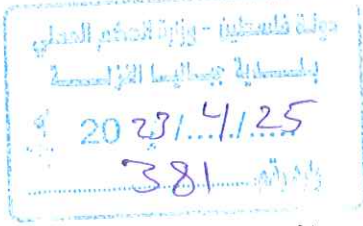 دولة فلسطين - وزارة الحكم المحلي
بلدية جباليا النزلة
2023/4/25
وارد رقم 381